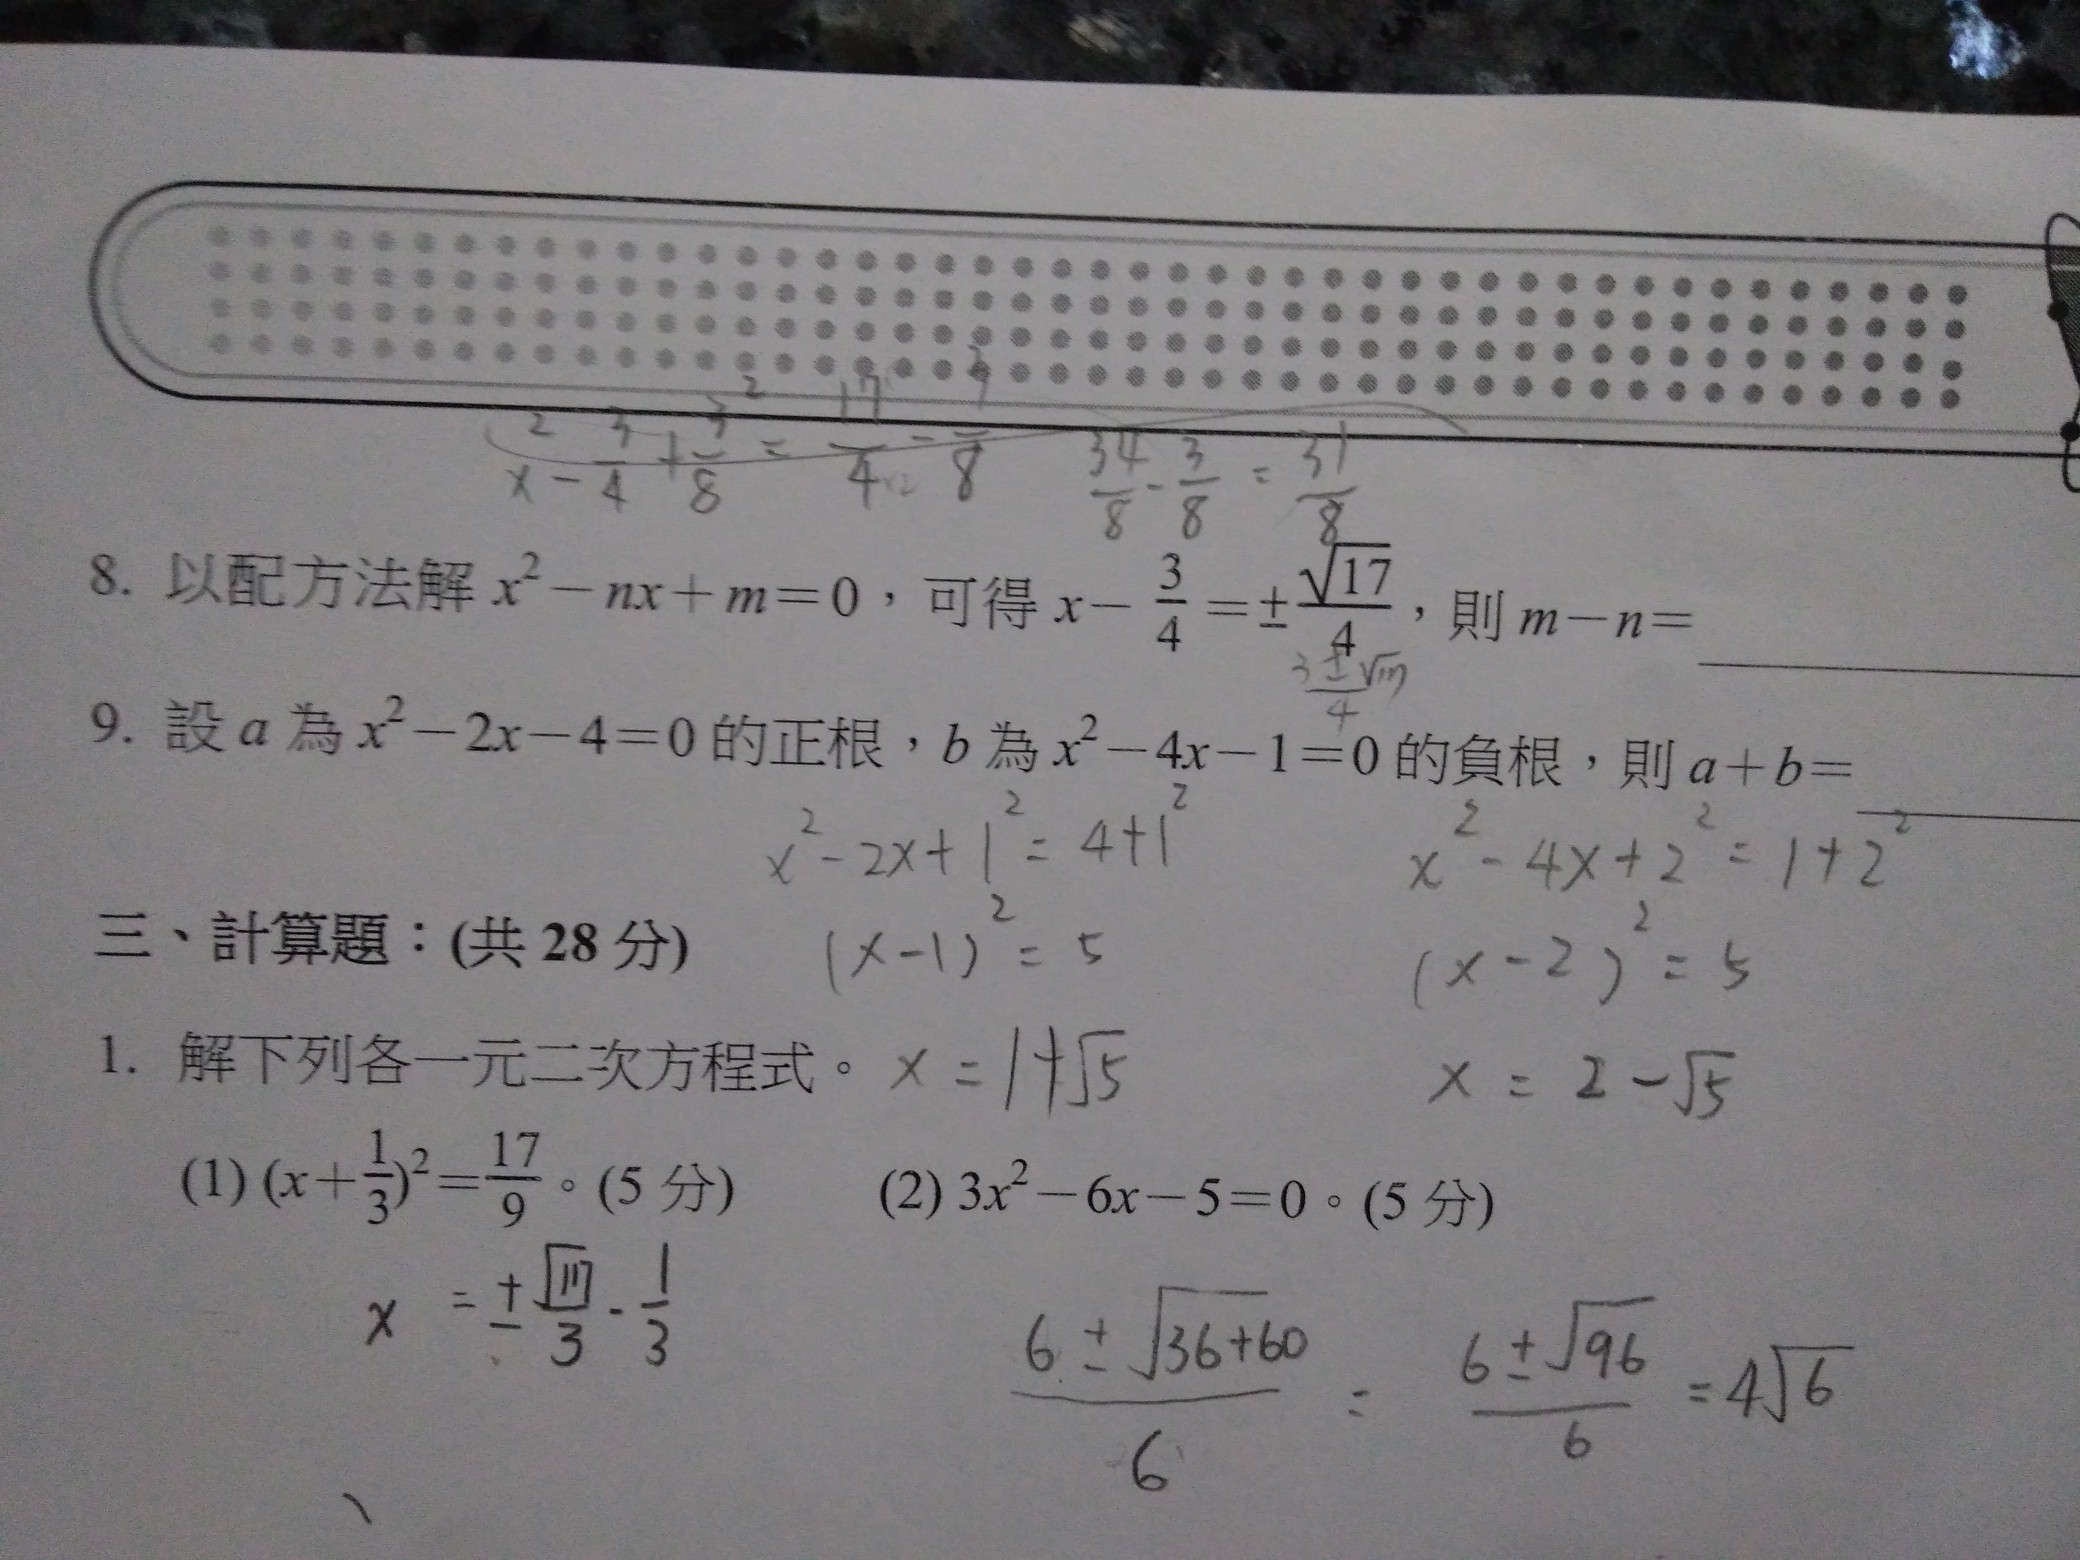 x² - 3/4 + 3/8² = 17/4 - 3/8 34/8 - 3/8 = 31/8
8. 以配方法解 x²－nx＋m＝0，可得 x－3/4＝±√17/4，則 m－n＝
3±√17/4
9. 設 a 為 x²－2x－4＝0 的正根，b 為 x²－4x－1＝0 的負根，則 a＋b＝
x² - 2x + 1² = 4 + 1² x² - 4x + 2² = 1 + 2²
三、計算題：(共 28 分) (x-1)² = 5 (x-2)² = 5
1. 解下列各一元二次方程式。 x = 1+√5 x = 2-√5
(1) (x＋1/3)²＝17/9。(5 分) (2) 3x²－6x－5＝0。(5 分)
x = ±√17/3 - 1/3
6±√36+60/6 = 6±√96/6 = 4√6